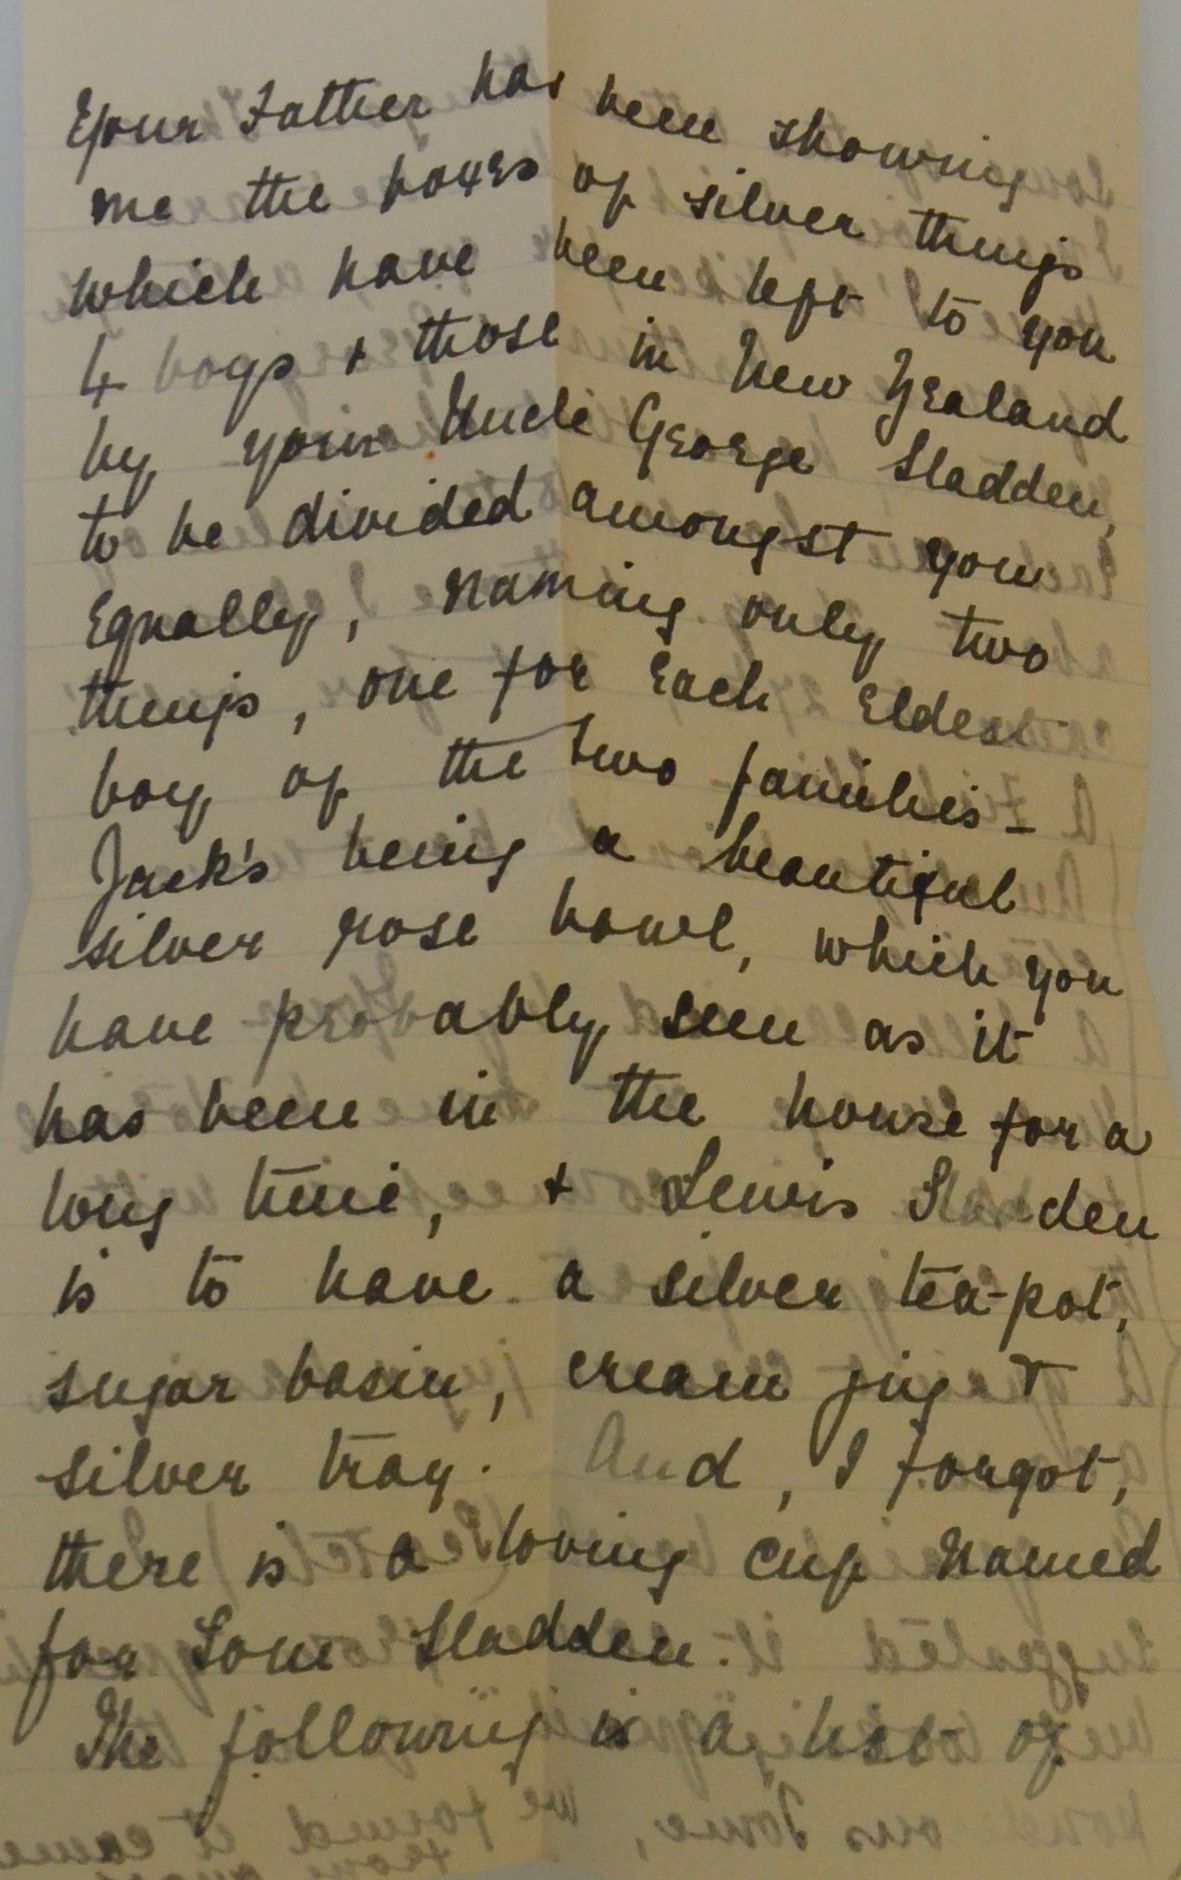 Your Father has been showing
me the boxes of silver things
which have been left to you
4 boys + those in New Zealand
by your Uncle George Sladden,
to be divided amongst you
Equally, naming only two
things, one for Each Eldest
boy of the two families -
Jack's being a beautiful
silver rose bowl, which you
have probably seen as it
has been in the house for a
long time, + Lewis Sladden
is to have a silver tea-pot,
sugar basin, cream jug +
silver tray. And, I forgot,
there is a loving cup named
for Tom Sladden.
The following is a list of